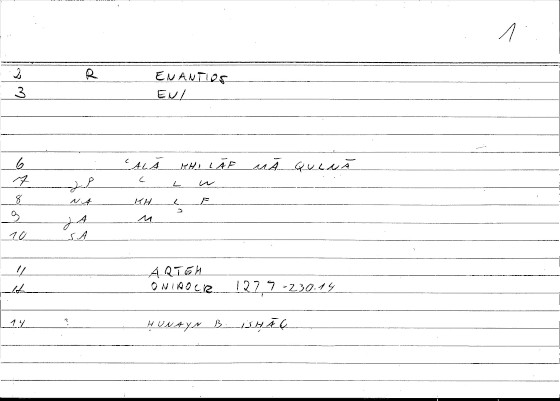 1
2 R ENANTIOS
3 EN/
6 ʿALĀ KHILĀF MĀ QULNĀ
7 gP ʿ L W
8 NA KH L F
9 gA M ʾ
10 SA
11 ARTEM
12 ONIROCR 127,7-230.14
14 : ḤUNAYN B. ISḤĀQ